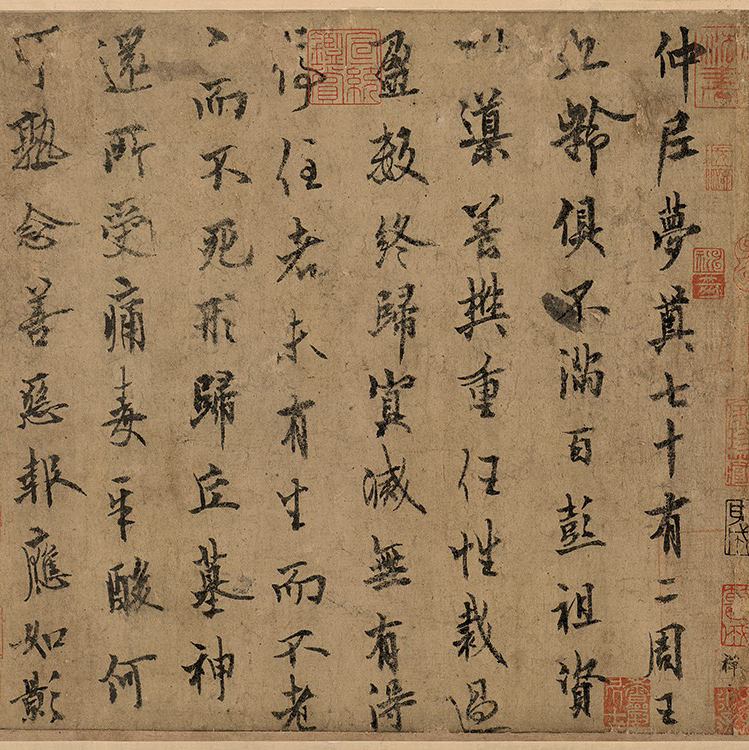 仲尼夢奠七十有二周王
九齡俱不滿百彭祖資
以導養樊重任性裁過
盈數終歸冥滅無有得
停住者未有生而不老
々而不死形歸丘墓神
還所受痛毒辛酸何
可熟念善惡報應如影
宣統
鑑賞